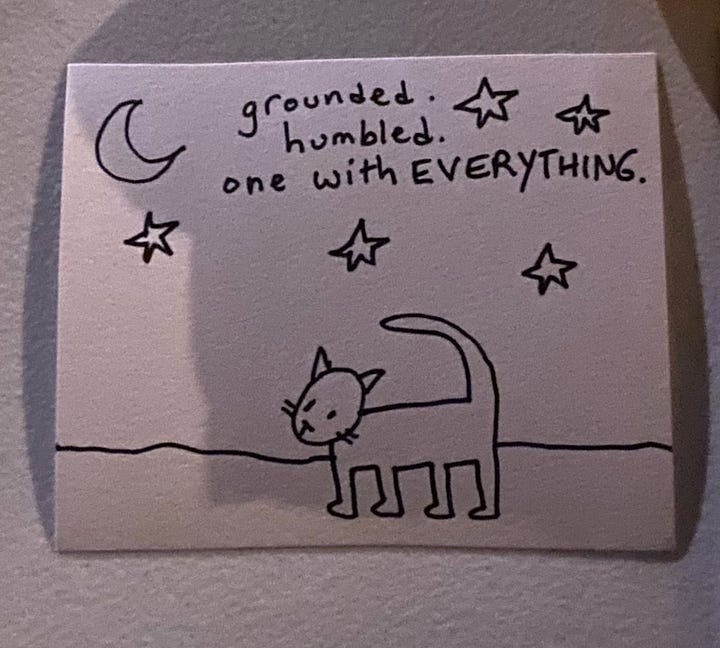 grounded.
humbled.
one with EVERYTHING.